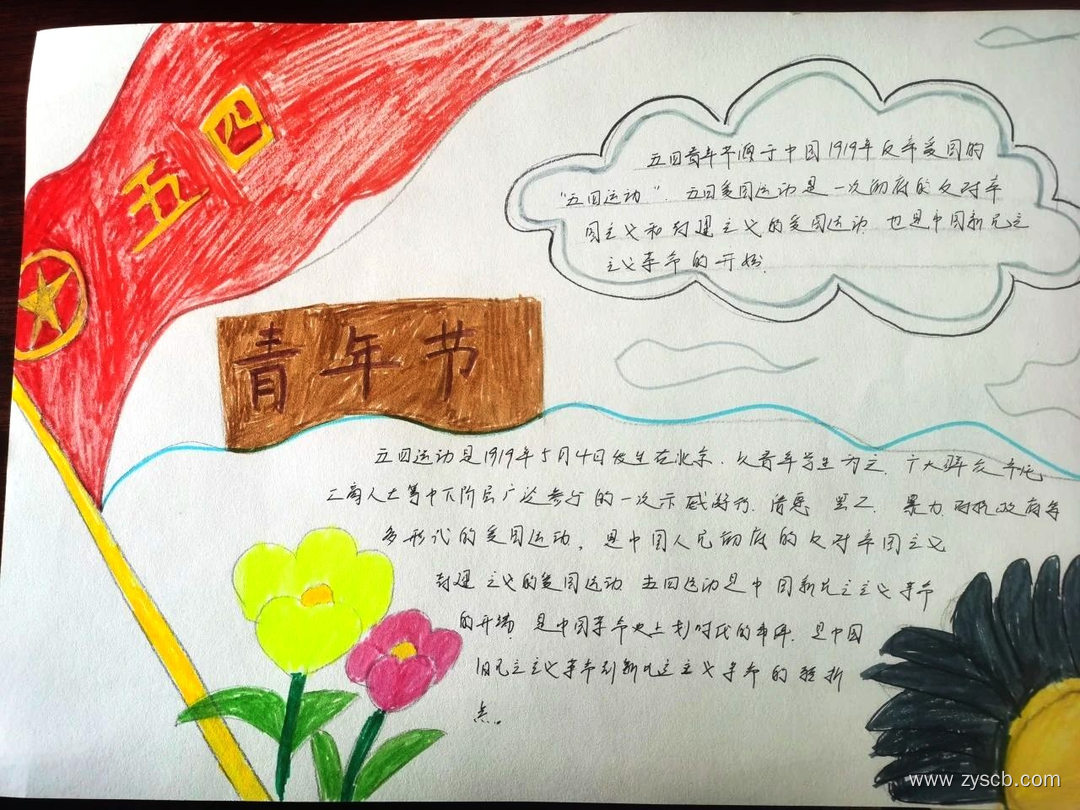 五四
青年节
五四青年节源于中国1919年反帝爱国的
“五四运动”,五四爱国运动是一次彻底的反对帝
国主义和封建主义的爱国运动,也是中国新民主
主义革命的开始.
五四运动是1919年5月4日发生在北京.以青年学生为主.广大群众市民
工商人士等中下阶层广泛参于的一次示威游行.请愿 罢工.暴力对抗政府等
多形式的爱国运动,是中国人民彻底的反对帝国主义
封建主义的爱国运动 五四运动是中国新民主主义革命
的开端 是中国革命史上划时代的事件.是中国
旧民主主义革命到新民主主义革命的转折
点。
www.zyscb.com